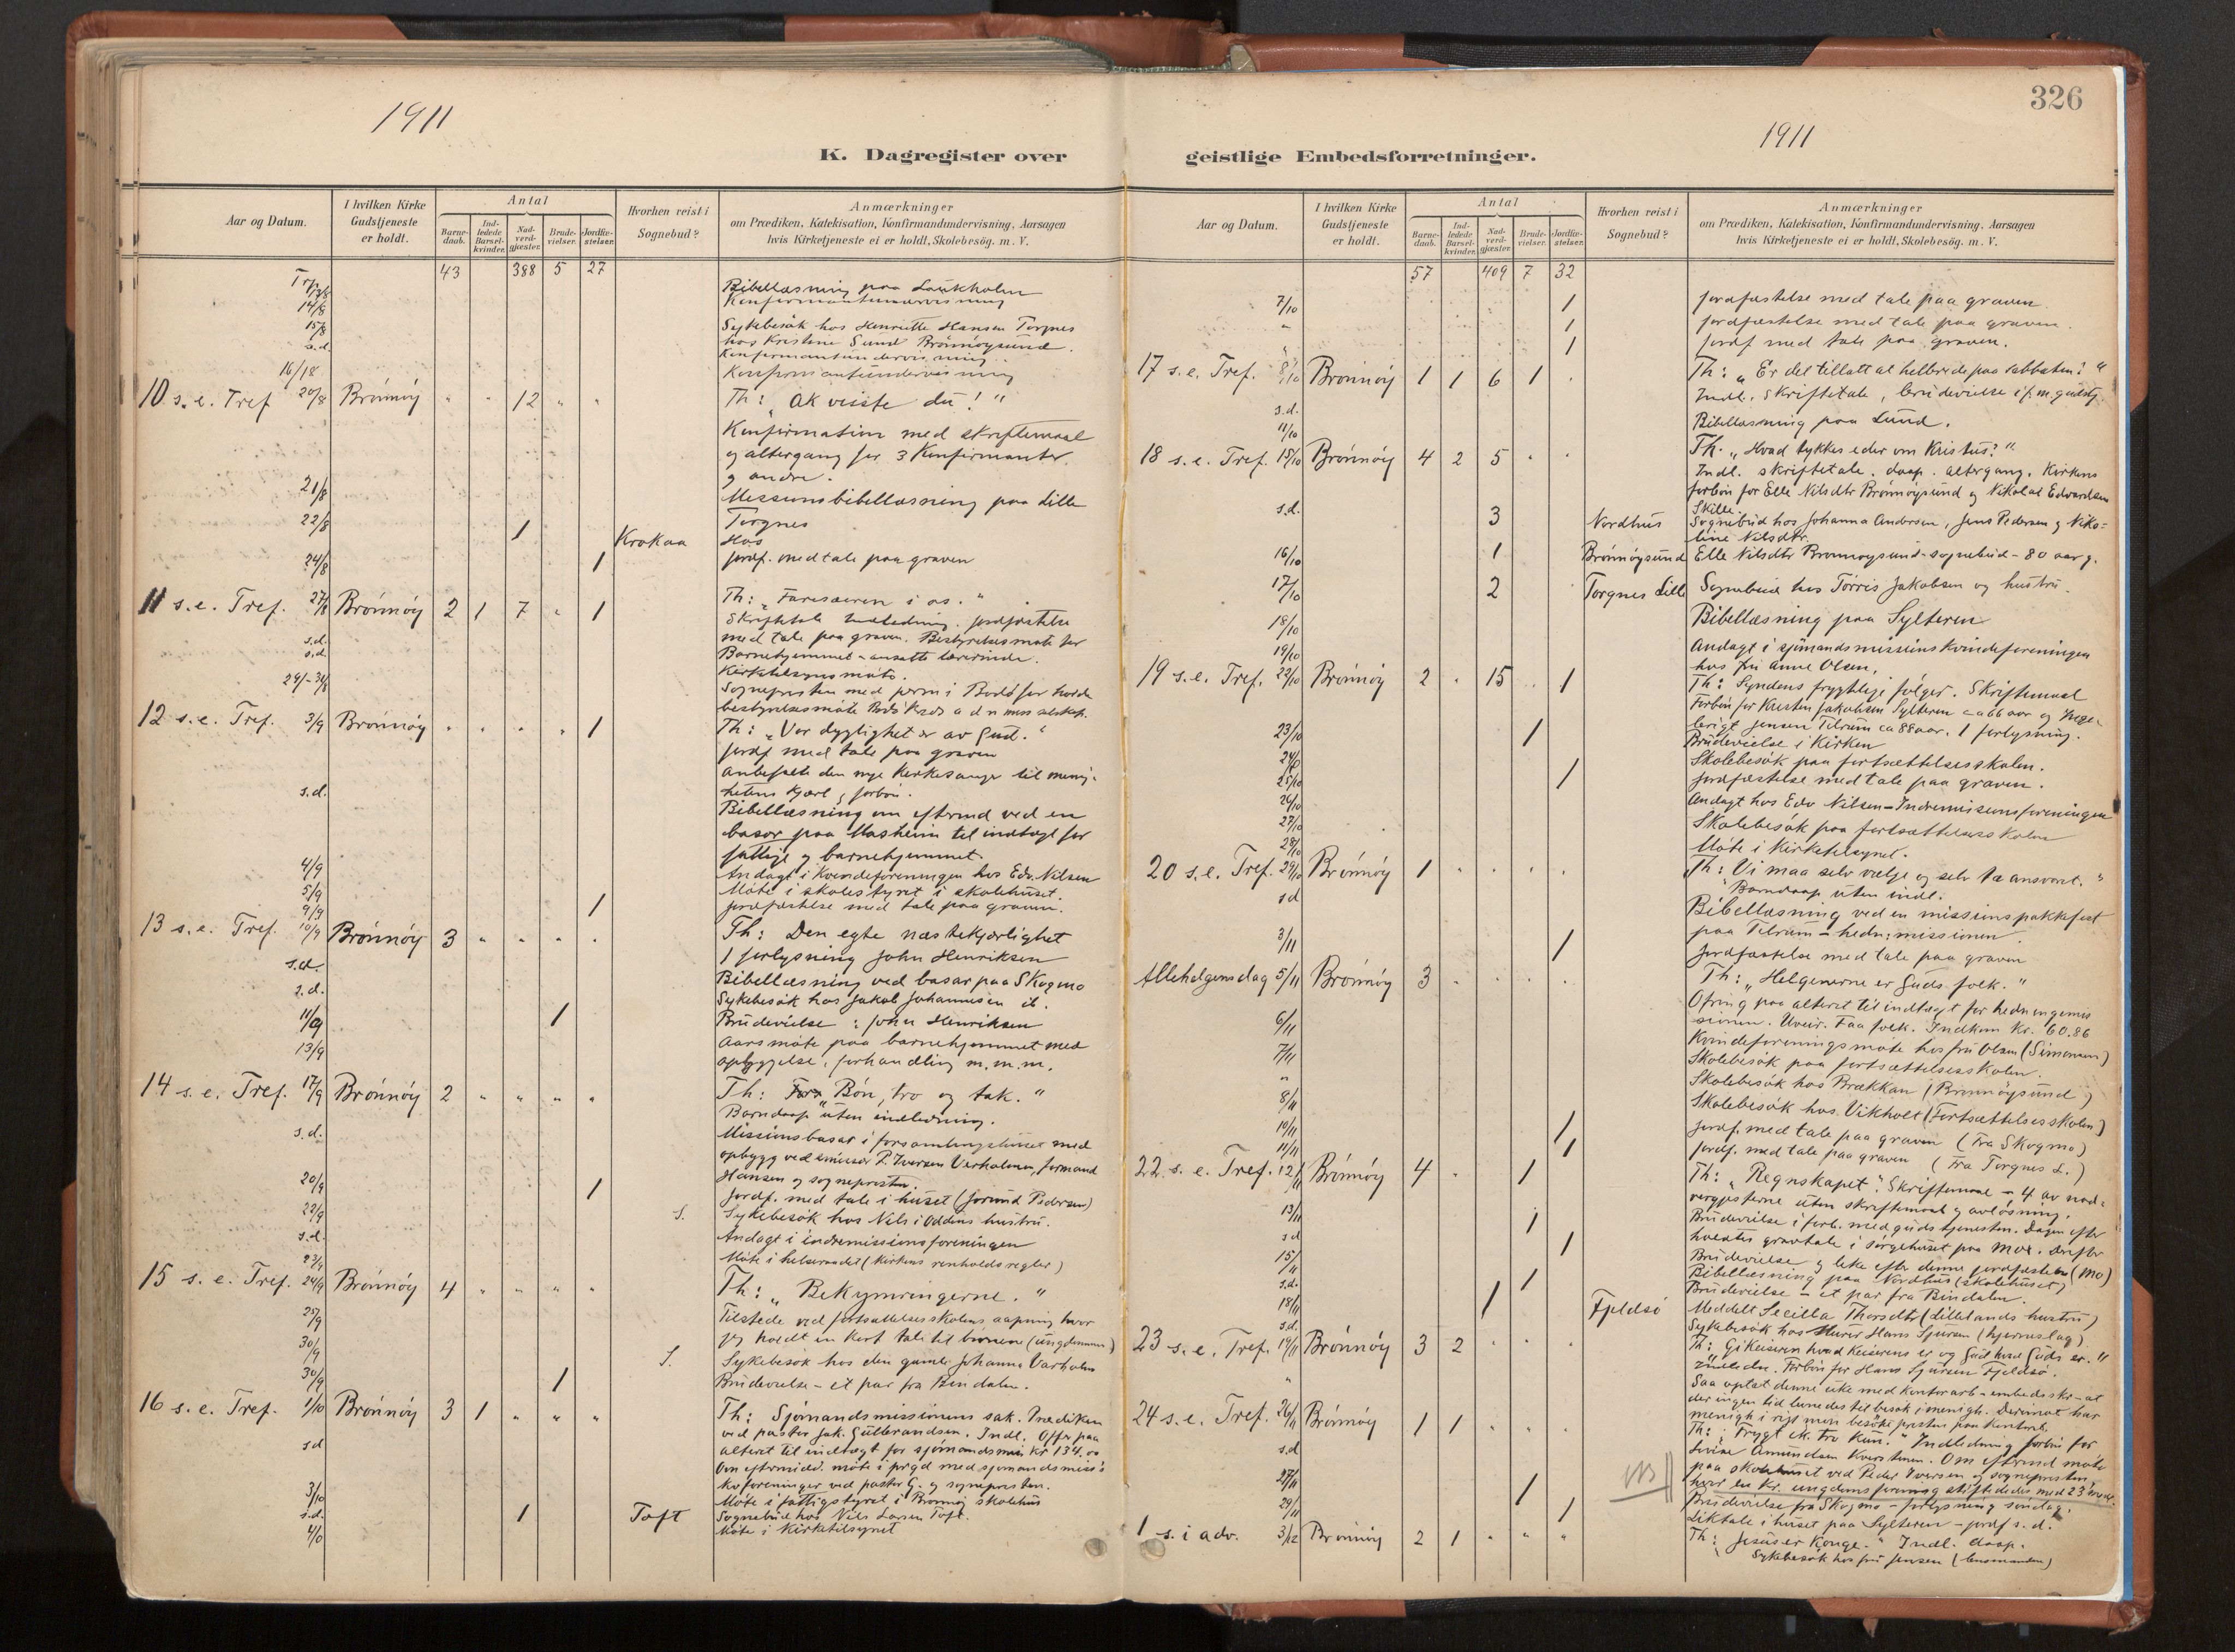 1911
K. Dagregister over
Aar og Datum.
I hvilken Kirke Gudstjeneste er holdt.
Antal
Barne-daab.
Ind-ledede Barsel-kvinder.
Nad-verd-gjæster.
Brude-vielser.
Jordfæ-stelser.
Hvorhen reist i Sognebud?
Anmærkninger
om Prædiken, Katekisation, Konfirmandundervisning, Aarsagen
hvis Kirketjeneste ei er holdt, Skolebesög. m. V.
43 388 5 27
Bibellæsning paa
14/8
15/8 Sykebesøk hos Henriette Hansen Torgnes
s.d. hos Kristine Sund Brønnøysund.
Konfirmantundervisning
16/18 Konfirmantundervisning
10 s. e. Tref 20/8 Brønnøy " " 12 " " Th: „Ak visste du!"
Konfirmation med skriftemaal
og altergang for 3 Konfirmanter
og andre.
21/8 Missionsbibellæsning paa Lille
Torgnes
22/8 1 Krokaa Hos
24/8 1 jordf. med tale paa graven
11 s. e. Tref. 27/8 Brønnøy 2 1 7 " 1 Th: „Farisæeren i os."
Skriftetale Indledning. jordfæstelse
s.d. med tale paa graven. Bestyrelsesmøte for
s.d. Barnehjemmet - ansatte lærerinde.
Kirketilsynsmøte.
Sognepresten med
12 s. e. Tref. 3/9 Brønnøy " " " " 1 Th: „Vor dygtighet er av Gud."
jordf med tale paa graven
anbefalte den nye Kirkesanger til menig-
hetens kjærl. forbøn.
s.d. Bibellæsning om efterm ved en
basar paa Masheim til indtægt for
fattige og barnehjemmet.
4/9 Andagt i Kvindeforeningen hos Edv. Nilsen
5/9 Møte i skolestyret i skolehuset.
9/9 1 jordfæstelse med tale paa graven.
13 s. e. Tref. 10/9 Brønnøy 3 " " " " Th: Den egte næstekjærlighet
1 forlysning John Henriksen
s.d. Bibellæsning ved basar paa Skogmo
s.d. Sykebesøk hos Jakob Johannesen
11/9 1 Brudevielse: John Henriksen
13/9 Aarsmøte paa barnehjemmet med
opbyggelse, forhandling m.m.m.
14 s. e. Tref. 17/9 Brønnøy 2 " " " " Th: „Bøn, tro og tak."
Barndaap uten indledning.
s.d. Missionsbasar i forsamlingshuset med
opbygg ved emissær P. Iversen Verholmen, formand
Hansen og sognepresten.
20/9 1 Jordf. med tale i huset (Jorund Pedersen)
22/9 S. Sykebesøk hos Nils i Oddens hustru.
s.d. Andagt i indremissionsforeningen
23/9 Møte i helseraadet (Kirkens renholdsregler)
15 s. e. Tref. 24/9 Brønnøy 4 " " " " Th: „Bekymringerne."
25/9 Tilstede ved fortsættelsesskolens aapning hvor
jeg holdt en kort tale til børnene (ungdommen)
30/9 S. Sykebesøk hos den gamle Johanna Varholm
30/9 1 Brudevielse - et par fra Bindalen.
16 s. e. Tref. 1/10 Brønnøy 3 1 " " " Th: Sjømandsmissionens sak. Prædiken
ved pastor Jak. Gulbrandsen. Indl. Offer paa
s.d alteret til indtægt for sjømandsmis. Kr 134.00
Om eftermidd. møte i prgd med sjømandsmiss's
kv.foreninger ved pastor G. og sognepresten.
3/10 Møte i fattigstyret i Brønnøy skolehus
s.d. 1 Toft Sognebud hos Nils Larsen Toft.
4/10 Møte i Kirketilsynet
326
1911
geistlige Embedsforretninger.
Aar og Datum.
I hvilken Kirke Gudstjeneste er holdt.
Antal
Barne-daab.
Ind-ledede Barsel-kvinder.
Nad-verd-gjæster.
Brude-vielser.
Jordfæ-stelser.
Hvorhen reist i Sognebud?
Anmærkninger
om Prædiken, Katekisation, Konfirmandundervisning, Aarsagen
hvis Kirketjeneste ei er holdt, Skolebesög. m. V.
57 409 7 32
7/10 1 jordfæstelse med tale paa graven
" 1 jordfæstelse med tale paa graven.
" 1 jordf med tale paa graven.
17 s. e. Tref. 8/10 Brønnøy 1 1 6 1 " Th: „Er det tillatt at helbrede paa sabbaten?"
Indl. Skriftetale, brudevielse i f.m. gudstj.
s.d. Bibellæsning paa Lund.
11/10
18 s. e. Tref. 15/10 Brønnøy 4 2 5 " " Th. „Hvad tykkes eder om Kristus?"
Indl. skriftetale. daap. altergang. Kirkens
forbøn for Elle Nilsdtr Brønnøysund og Nikolai Edvardsen
Skille.
s.d. 3 Nordhus Sognebud hos Johanna Andersen, Jens Pedersen og Niko-
line Nilsdtr.
16/10 1 Brønnøysund Elle Nilsdtr Brønnøysund - sognebud - 80 aar g.
17/10 2 Torgnes Lille Sognebud hos Tørris Jakobsen og hustru.
18/10 Bibellæsning paa Sylteren
19/10 Andagt i sjømandsmissions Kvindeforeningen
hos fru Anne Olsen.
19 s. e. Tref. 22/10 Brønnøy 2 " 15 " 1 Th: Syndens frygtelige følger. Skriftemaal
Forbøn for Kirsten Jakobsen Sylteren ca 66 aar og Inge-
brigt Jensen Tilrum ca 88 aar. 1 forlysning.
23/10 1 Brudevielse i Kirken
24/10 Skolebesøk paa fortsættelsesskolen.
25/10 1 jordfæstelse med tale paa graven.
26/10 Andagt hos Edv Nilsen - Indremissionsforeningen
27/10 Skolebesøk paa fortsættelsesskolen
28/10 Møte i Kirketilsynet.
20 s. e. Tref. 29/10 Brønnøy 1 " " " " Th: „Vi maa selv vælge og selv ta ansvaret."
Barndaap uten indl.
s.d Bibellæsning ved en missionspakkefest
paa Tilrum - hedn: missionen.
3/11 1 Jordfæstelse med tale paa graven
Allehelgensdag 5/11 Brønnøy 3 " " " " Th: „Helgenerne er Guds folk."
Ofring paa alteret til indtægt for hedningemis
sionen. Uveir. Faa folk. Indkom Kr. 60.86
6/11 Kvindeforeningsmøte hos fru Olsen (Simonsen)
7/11 Skolebesøk paa fortsættelsesskolen.
" Skolebesøk hos Brækkan (Brønnøysund)
8/11 Skolebesøk hos Vikholt (Fortsættelsesskolen)
10/11 1 Jordf. med tale paa graven (Fra Skogmo)
11/11 1 jordf. med tale paa graven (Fra Torgnes L.)
22 s. e. Tref. 12/11 Brønnøy 4 " 1 Th: „Regnskapet". Skriftemaal - 4 av nad-
vergjesterne uten skriftemaal og avløsning.
13/11 1 Brudevielse i forb. med gudstjenesten. Dagen efter
s.d 1 holdtes gravtale i sørgehuset paa Moe. derefter
15/11 Brudevielse og like efter denne jordfæstelse (Mo)
Bibellæsning paa Nordhus (skolehuset)
s.d. 1 Brudevielse - et par fra Bindalen.
18/11 1 Fjeldsø Meddelt Secilla Thorsdtr ( hustru)
s.d. Sykebesøk hos Hans Sjursen (hjerneslag)
23 s. e. Tref. 19/11 Brønnøy 3 2 " " " Th: „Gi Keiseren hvad Keiserens er og Gud hvad Guds er."
Forbøn for Hans Sjursen Fjeldsø.
" Saa optat denne uke med kontorarb - embedsskr - at
der ingen tid levnedes til besøk i menigh. Derimot har
menigh i rigt mon besøkt presten paa kontoret.
24 s. e. Tref. 26/11 Brønnøy 1 1 " " " Th: „Frygt ik. tro kun." Indledning forbøn for
Amundsen. Om efterm møte
s.d paa skolehuset ved Peder Iversen og sognepresten,
NB hvor en Kr. ungdomsforening stiftedes med 23 medl.
27/11 1 Brudevielse fra Skogmo - forlysning søndag.
29/11 1 Liktale i huset paa Sylteren - jordf s. d.
1 s. i adv. 3/12 Brønnøy 2 1 " " " Th: „Jesus er Konge." Indl. daap.
Sykebesøk hos fru Jensen (lensmanden)